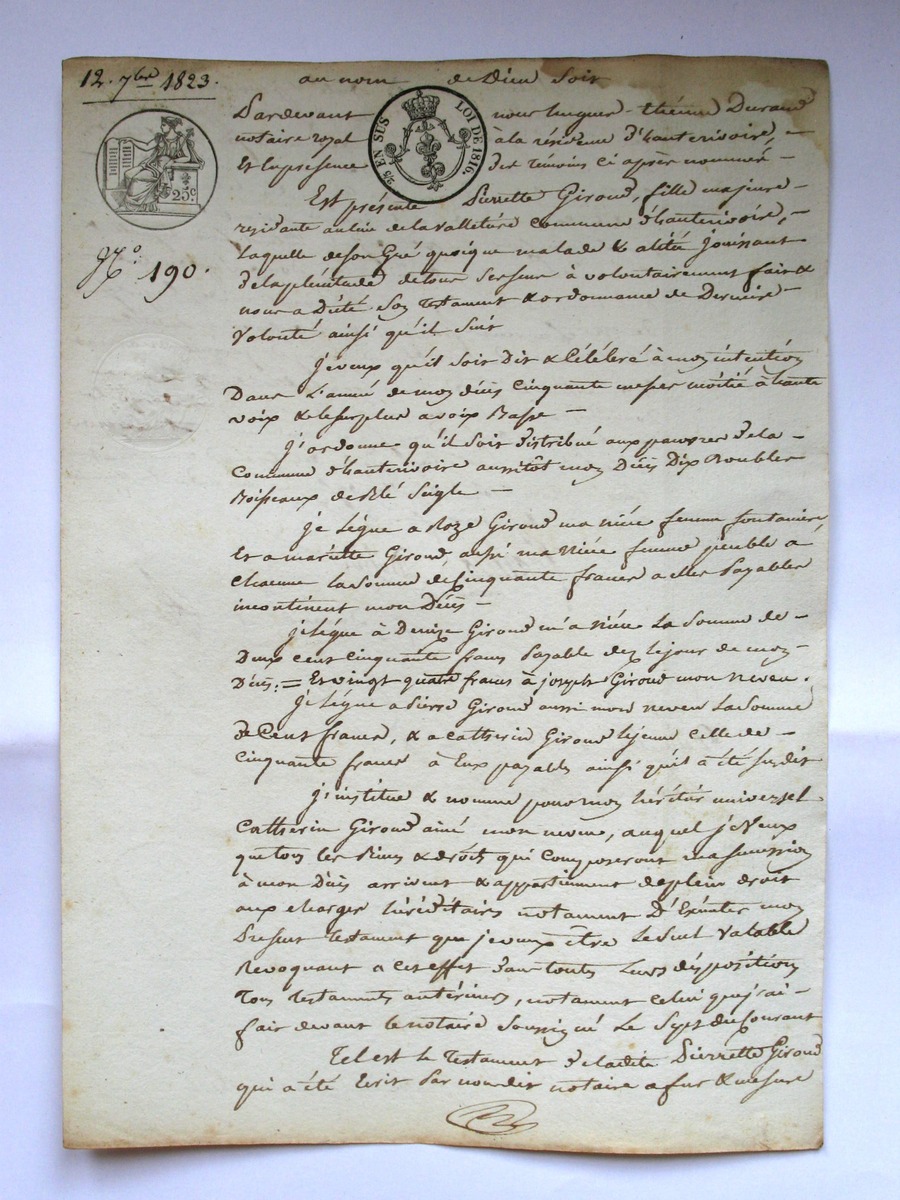 12. 7bre 1823.
au nom de Dieu soit
Pardevant nous hugues-Etienne Durand
notaire royal à la résidence d'hauterivoire,
Et en presence des témoins ci après nommés
25 EN SUS LOI DE 1816.
25c.
N.o 190.
Est présente Pierrette Giroud, fille majeure
residante au lieu de la Valletière commune d'hauterivoire,
Laquelle de son Gré quoique malade & alitée Jouissant
de la plenitude de tous ses sens à volontairement fait &
nous a Dicté Son Testament & ordonnance de Derniere
Volonté ainsi qu'il Suit
Je veux qu'il soit Dit & Célébré à mon intention
Dans L'année de mon décès Cinquante messes moitié à haute
voix & le surplus a voix Basse
J'ordonne qu'il soit distribué aux pauvres de la
Commune d'hauterivoire aussitôt mon Décès Dix Doubles
Boisseaux de Blé Seigle
Je Lègue a Roze Giroud ma niéce femme fontaniere
Et a mariette Giroud aussi ma Niéce femme à
Chacune la Somme de Cinquante francs a elles Payables
incontinent mon Décès
je Lègue à Denize Giroud m'a niéce La Somme de
Deux cent cinquante francs Payable dez le jour de mon
Décès; = Et vingt quatre francs à joseph Giroud mon neveu.
Je Lègue a Pierre Giroud aussi mon neveu La Somme
de Cent francs, & a Catherin Giroud le jeune celle de
Cinquante francs à Eux payables ainsi qu'il a été susdit
J'institue & nomme pour mon héritier universel
Catherin Giroud ainé mon neveu, auquel je Veux
que tous les Biens & droits qui Composeront ma succession
à mon Décès arrivent & appartiennent de plein droit
aux charges héréditaires notament D'Exécuter mon
Présent Testament que je veux être Le Seul Valable
Revoquant a cet effet dans toutes leurs dispositions
Tous Testaments antérieurs, notament celui que j'ai
fait devant le notaire Soussigné Le Sept du Courant
Tel est le Testament de ladite Pierrette Giroud
qui a été Ecrit Par nous dit notaire a fur & mesure